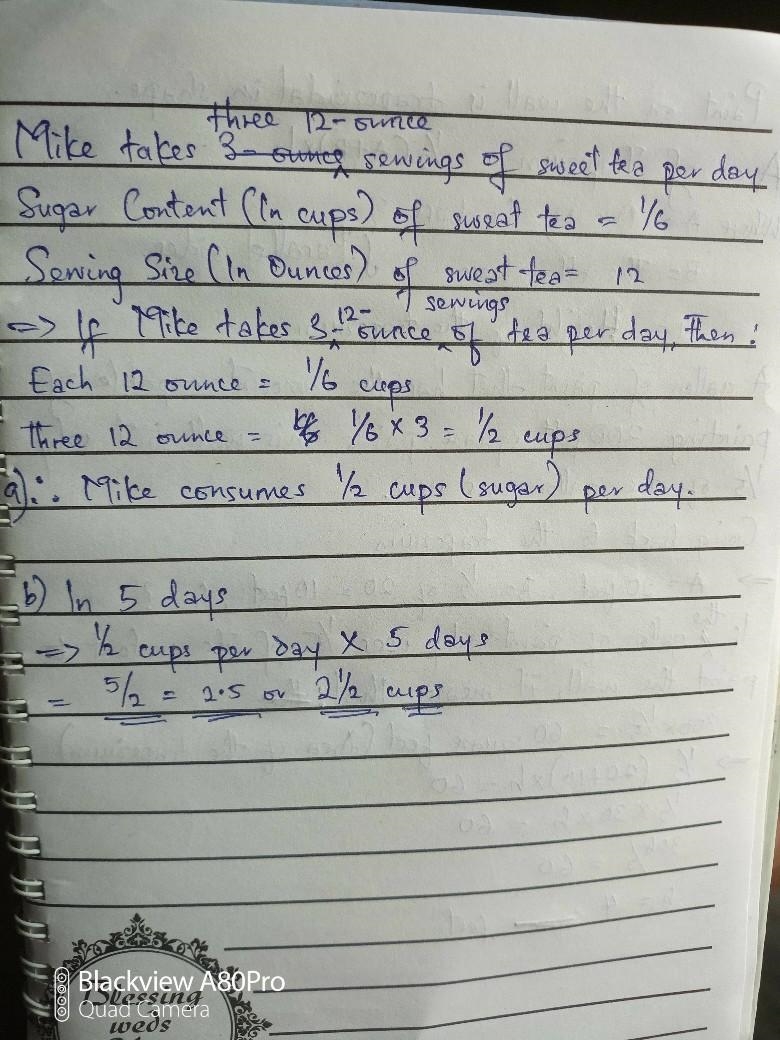 three 12-ounce
Mike takes 3-ounce servings of sweet tea per day
Sugar Content (In cups) of sweat tea = 1/6
Serving Size (In Ounces) of sweat tea = 12
12- servings
=> If Mike takes 3-ounce of tea per day, Then:
Each 12 ounce = 1/6 cups
three 12 ounce = 1/6 x 3 = 1/2 cups
a) ∴ Mike consumes 1/2 cups (sugar) per day.
b) In 5 days
=> 1/2 cups per day x 5 days
= 5/2 = 2.5 or 2 1/2 cups
Blackview A80Pro
Quad Camera
Blessing
weds